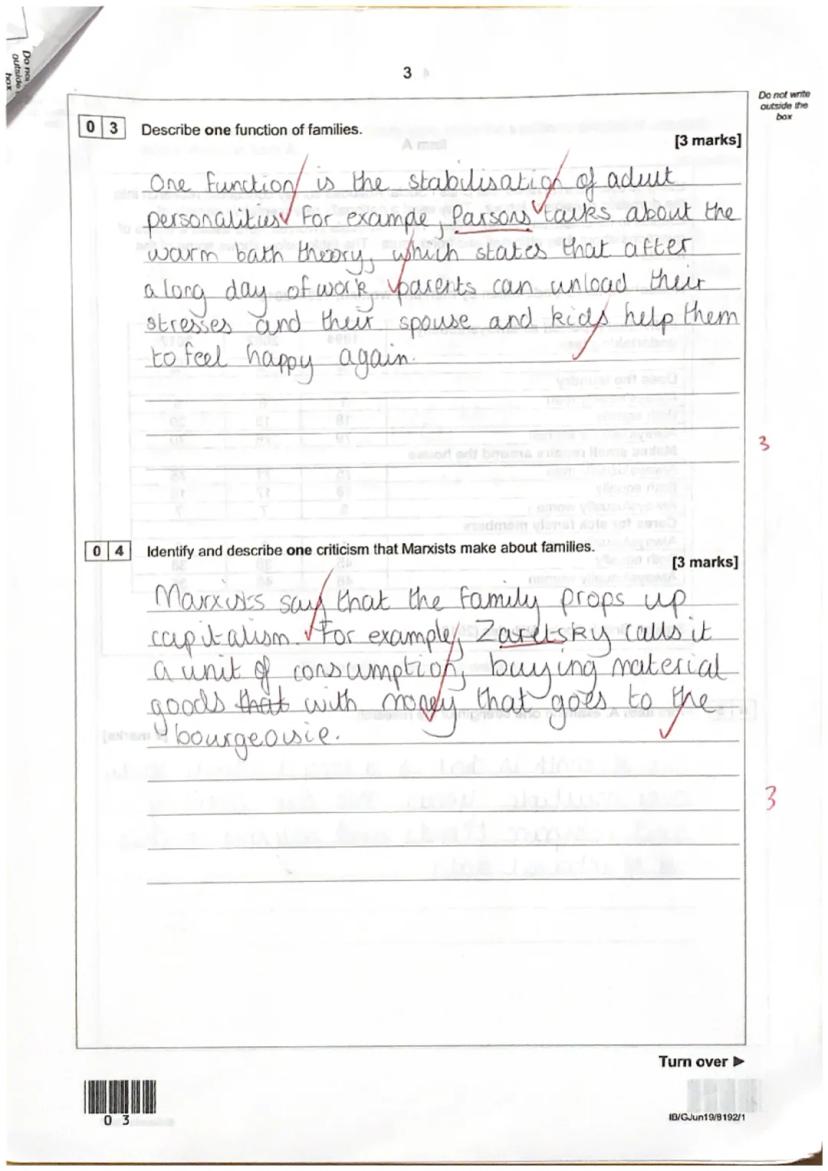 Do not
outside
box
3
Do not write
outside the
box
0 3 Describe one function of families.
[3 marks]
One function is the stabilisation of adult
personalities For example, Parsons talks about the
warm bath theory, which states that after
a long day of work parents can unload their
stresses and their spouse and kids help them
to feel happy again.
3
0 4 Identify and describe one criticism that Marxists make about families.
[3 marks]
Marxists say that the family props up
capitalism. For example, Zaretsky calls it
a unit of consumption, buying material
goods that with money that goes to the
bourgeoisie.
3
Turn over ►
0 3
IB/G/Jun19/8192/1